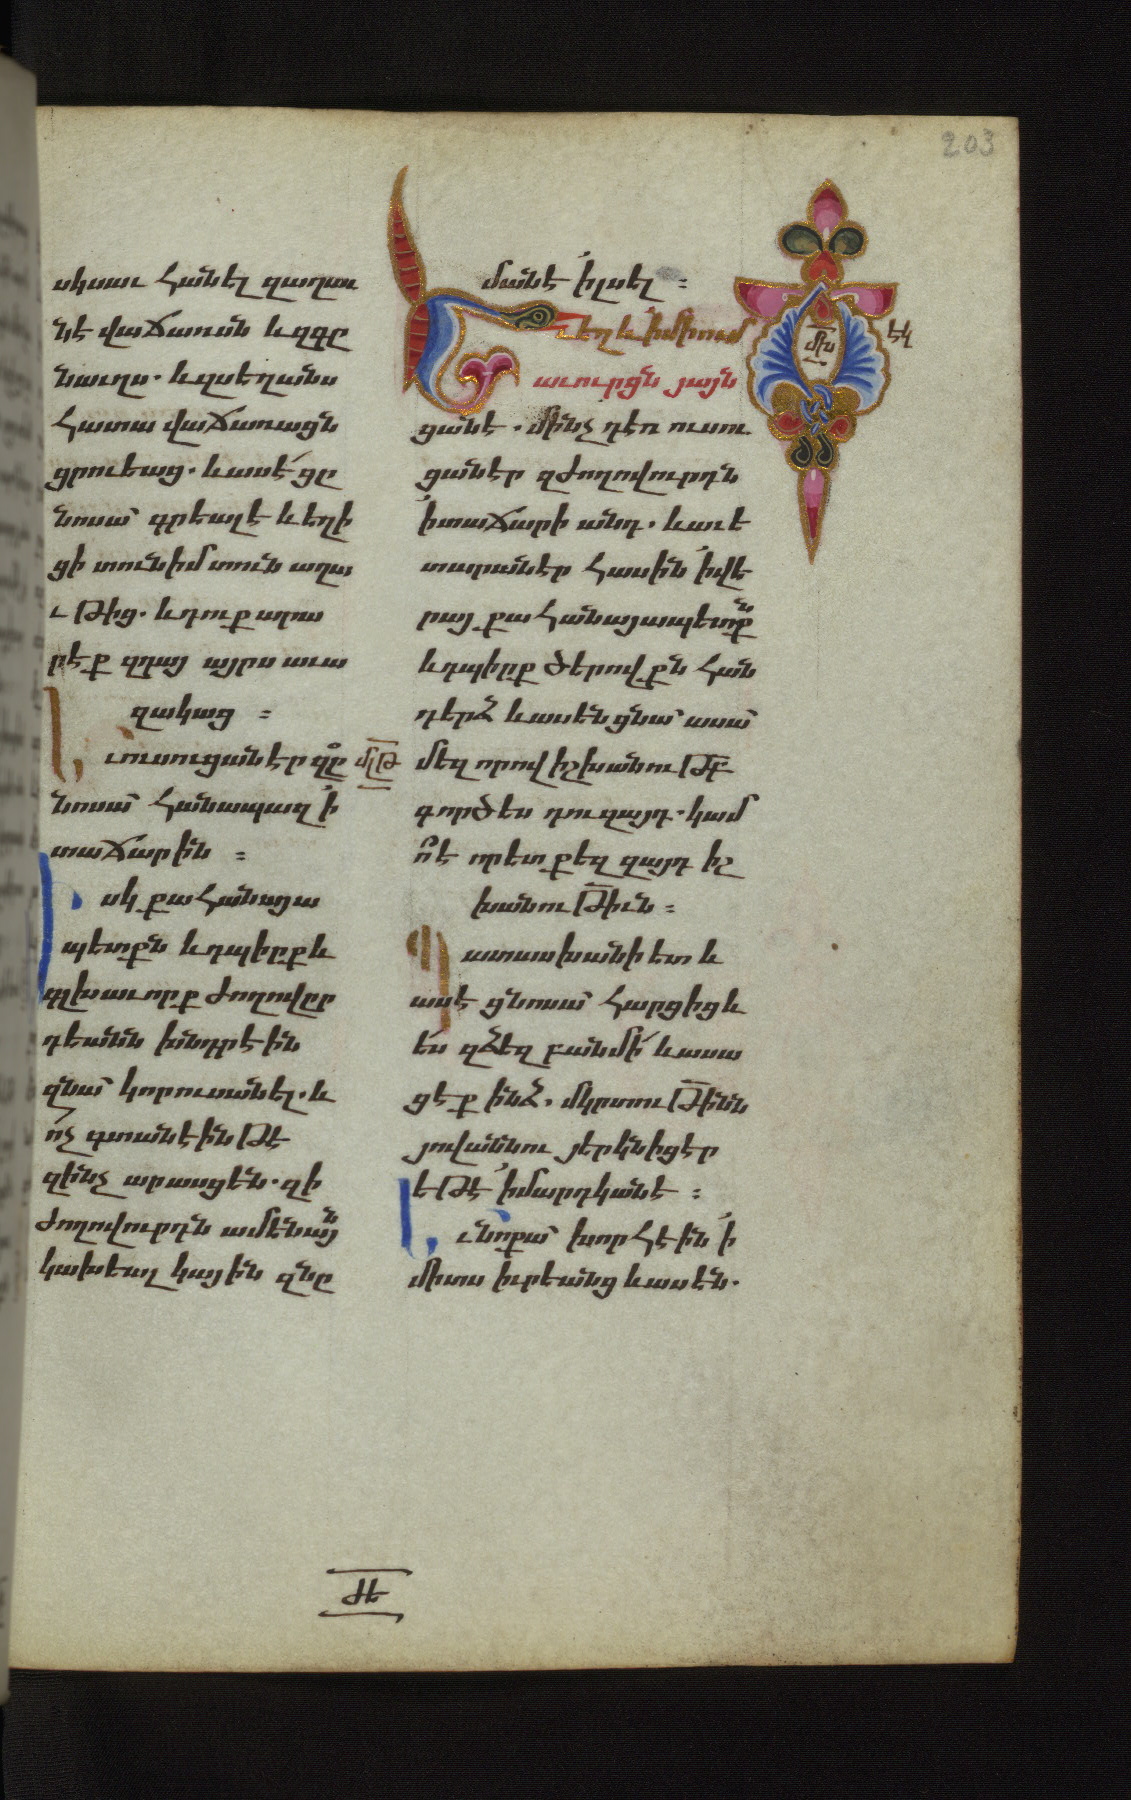 203
սկսաւ հանել զաղաւ
նէ վաճառսն և զգը
նաւղս. և զսեղանս
հատավաճառացն
ցրուեաց. և ասէ ցը
նոսա՝ գրեալ է և եղի
ցի տուն իմ տուն աղա
ւթից. և դուք արա
րէք զդայ այրս աւա
զակաց :
Եւ ուսուցանէր զը
մլթ
նոսա՝ հանապազ ՛ի
տաճարին :
Իսկ քահանայա
պետքն և դպիրք և
գլխաւորք ժողովըր
դեանն խնդրէին
զնա՝ կորուսանել. և
ոչ գտանէին թէ
զինչ արասցեն. զի
ժողովուրդն ամենայն
կախեալ կային զնը
մանէ ՛ի լսել :
Եւ եղև ՛ի միում
աւուրցն յայն
մխ
էկ
ցանէ. մինչ դեռ ուսու
ցանէր զժողովուրդն
՛ի տաճարի անդ. և աւե
տարանէր հասին ՛ի վե
րայ քահանայապետքն
և դպիրք ծերովքն հան
դերձ և ասեն ցնա՝ ասա՝
մեզ որով իշխանութբ
գործես դու զայդ. կամ
ո՞ է որ ետ քեզ զայդ իշ
խանութիւն :
Պատասխանի ետ և
ասէ ցնոսա՝ հարցից և
ես զձեզ բան մի և ասա
ցէք ինձ. մկրտութինն
յովաննու յերկնից էր
եթէ ՛ի մարդկանէ :
Եւ նոքա՝ խորհէին ՛ի
միտս իւրեանց և ասեն.
ԺԵ